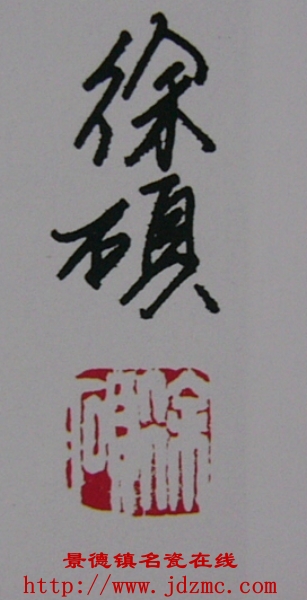 徐
硕
景德镇名瓷在线
http://www.jdzmc.com